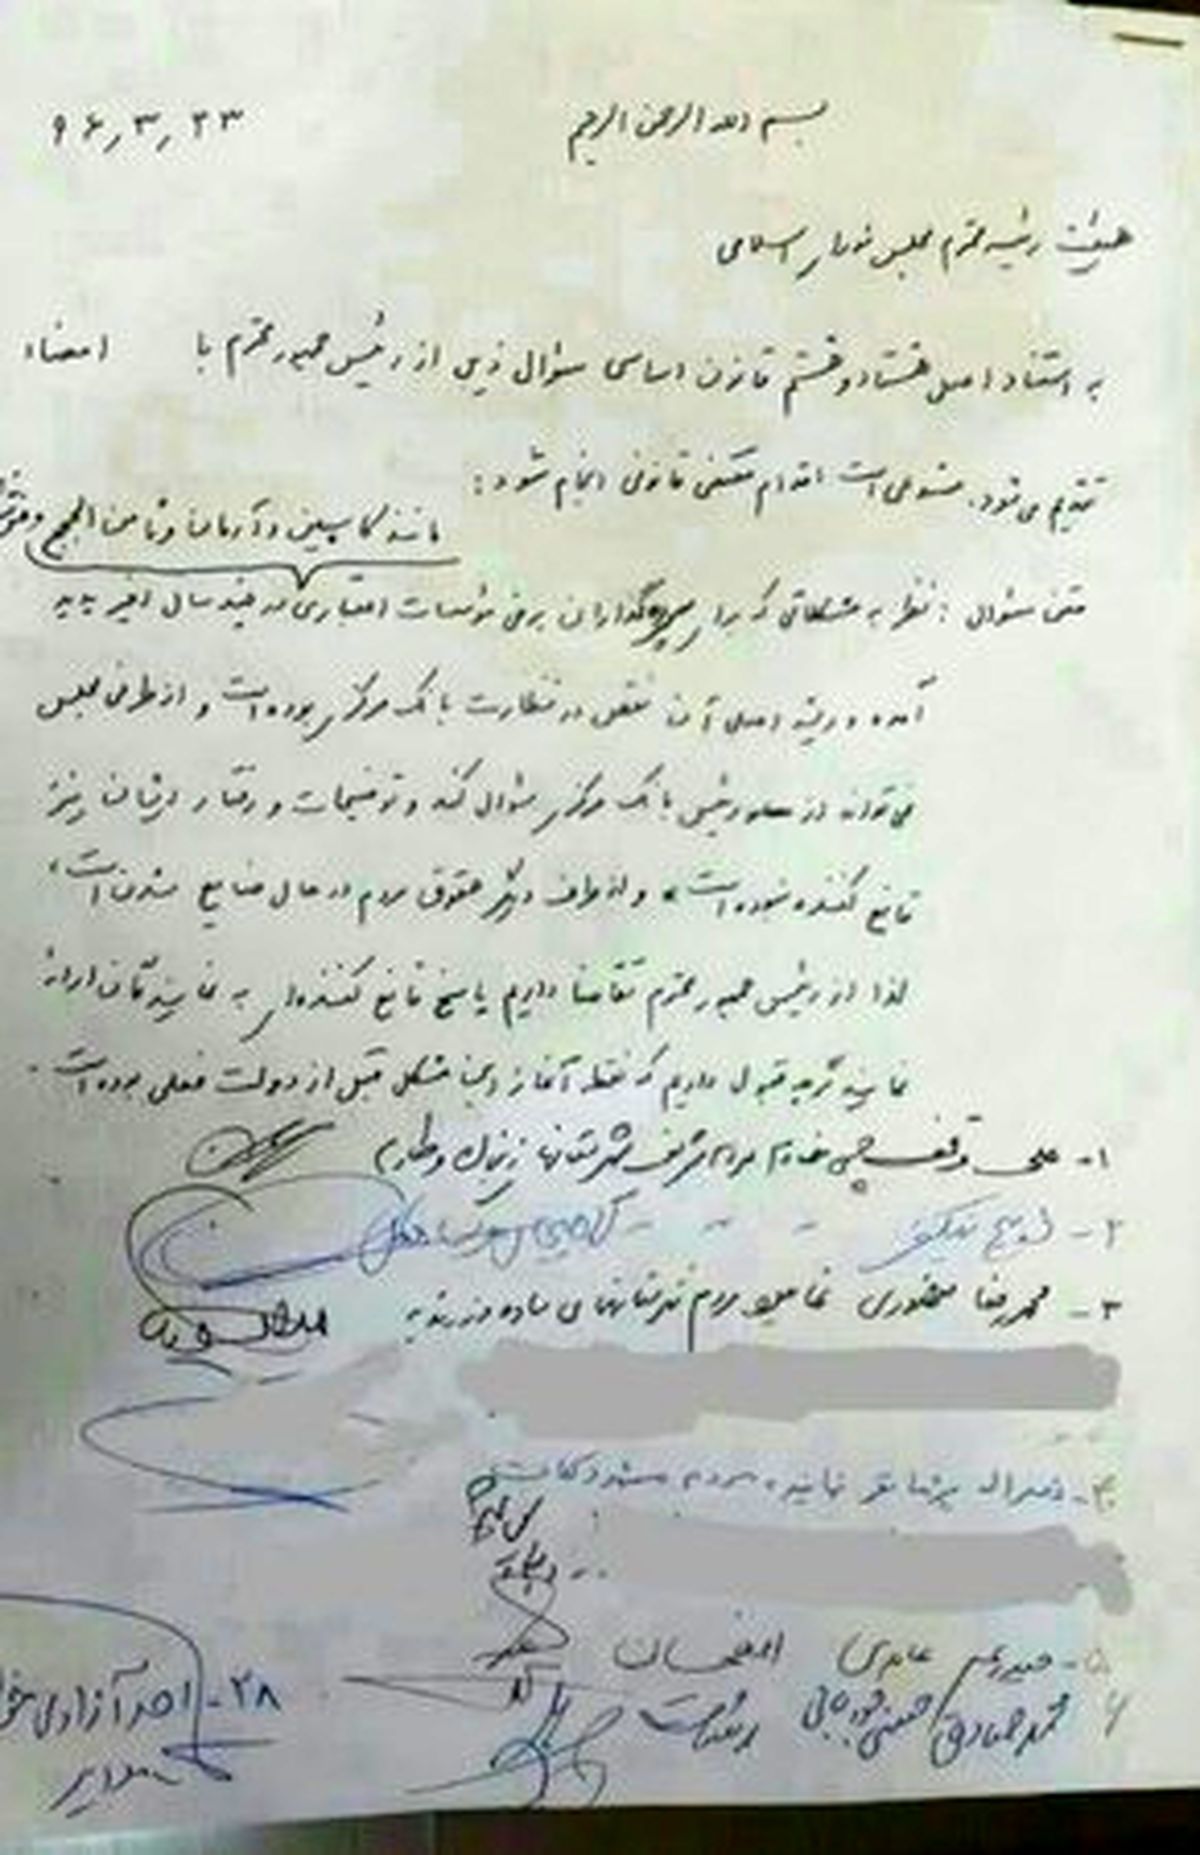 بسم الله الرحمن الرحیم
۹۶٫۳٫۲۳
هیئت رئیسه محترم مجلس شورای اسلامی
به استناد اصل هشتاد و هشتم قانون اساسی سؤال ذیل از رئیس جمهور محترم با امضاء
تقدیم می‌شود. مستدعی است اقدام مقتضی قانونی انجام شود:
مانند کاسپین و آرمان و ثامن الحجج و
متن سؤال: نظر به مشکلاتی که برای سپرده‌گذاران برخی مؤسسات اعتباری در چند سال اخیر پدید
آمده و ریشه اصلی آن نقص در نظارت بانک مرکزی بوده است و از طرفی مجلس
نمی‌تواند از رئیس بانک مرکزی سؤال کند و توضیحات و رفتار ایشان نیز
قانع کننده نبوده است، و از طرف دیگر حقوق مردم در حال ضایع شدن است،
لذا از رئیس جمهور محترم تقاضا داریم پاسخ قانع کننده‌ای به نمایندگان ارائه
نمایند گرچه قبول داریم که نقطه آغاز این مشکل قبل از دولت فعلی بوده است.
۱- علی وقف‌چی خادم مردم شریف شهرستانها زنجان و طارم
۲-
۳- محمدرضا منصوری نماینده مردم شهرستانهای ساوه و زرندیه
۴- نصراله پژمانفر نماینده مردم مشهد و کلات
۵- عابدی اصفهان
۶ محمدصادق حسنی جوریانی رشت
۲۸- احد آزادی‌خواه
ملایر